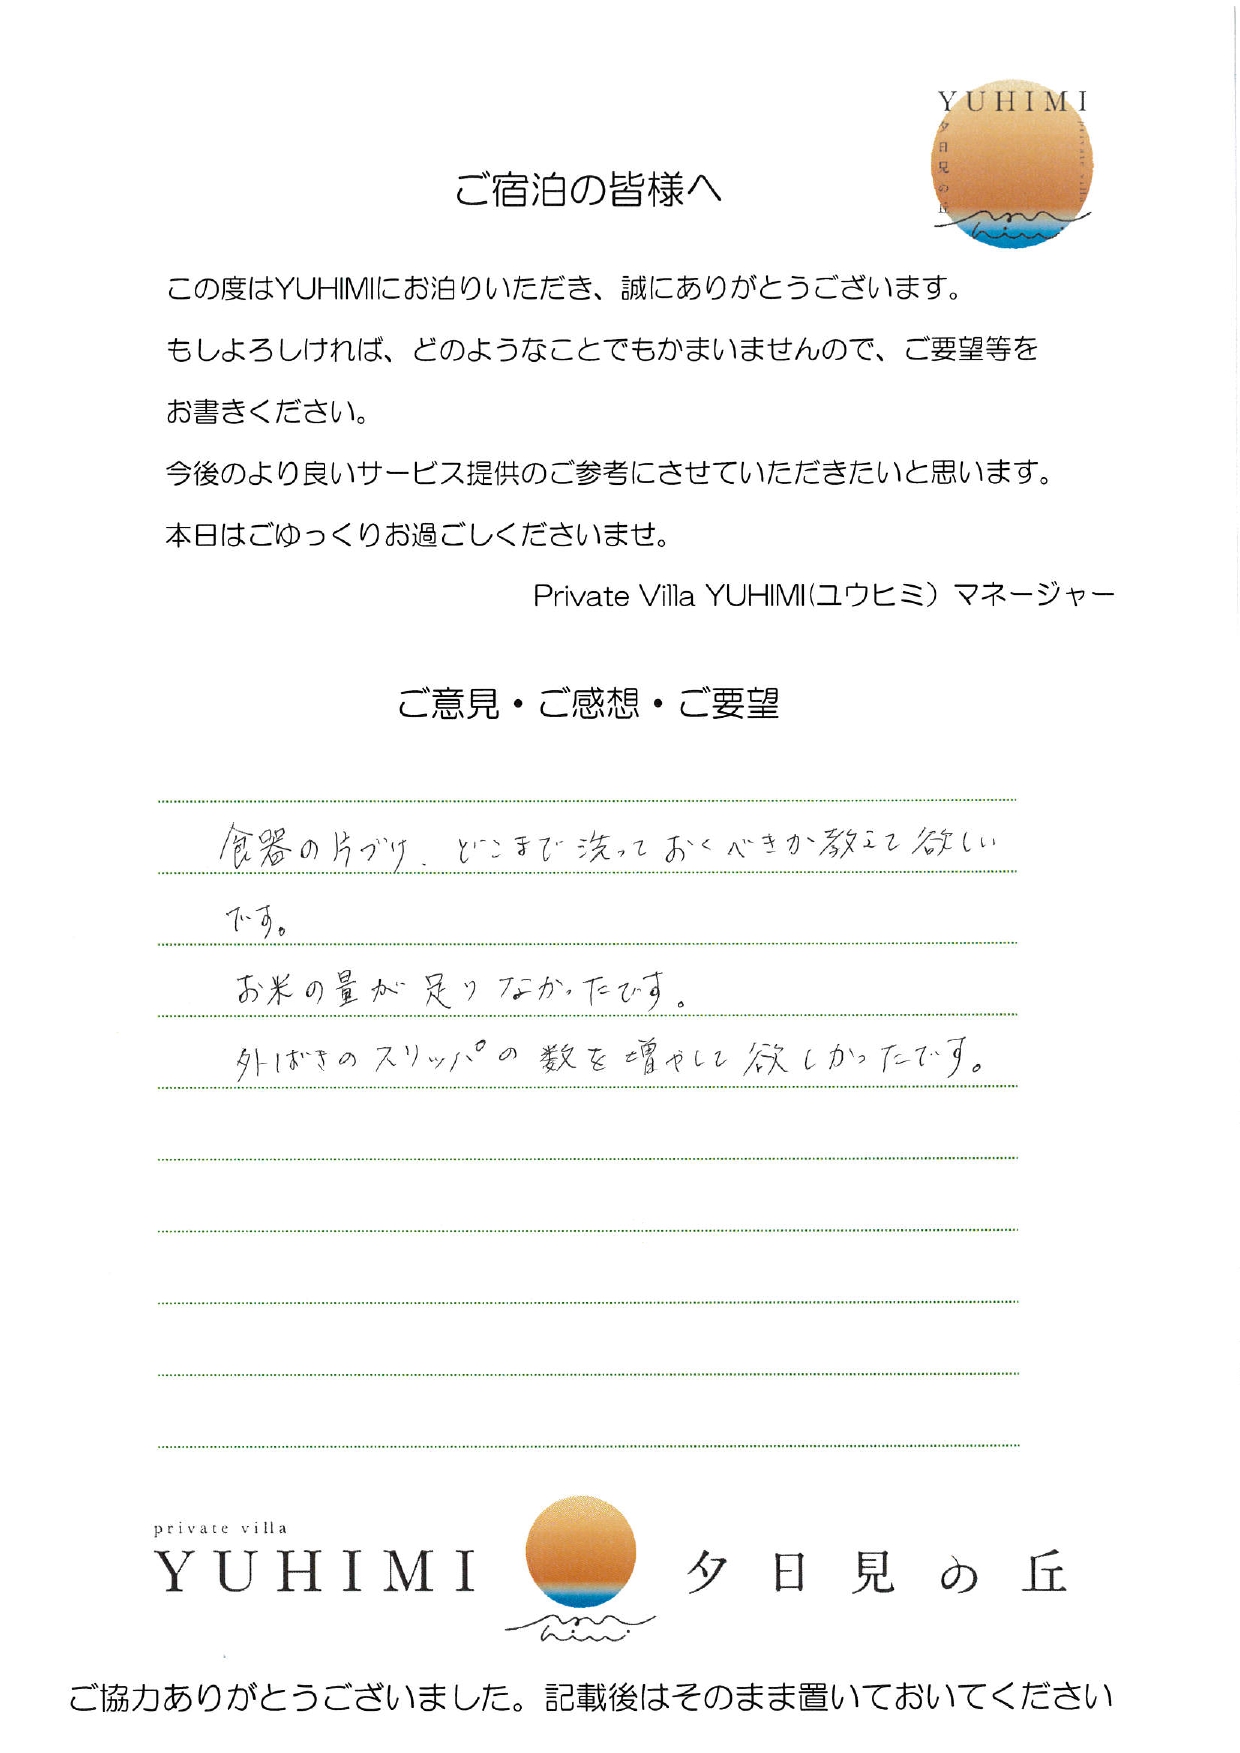 YUHIMI
夕日見の丘
private villa
ご宿泊の皆様へ
この度はYUHIMIにお泊りいただき、誠にありがとうございます。
もしよろしければ、どのようなことでもかまいませんので、ご要望等を
お書きください。
今後のより良いサービス提供のご参考にさせていただきたいと思います。
本日はごゆっくりお過ごしくださいませ。
Private Villa YUHIMI(ユウヒミ）マネージャー
ご意見・ご感想・ご要望
食器の片づけ、どこまで洗っておくべきか教えて欲しい
です。
お米の量が足りなかったです。
外ばきのスリッパの数を増やして欲しかったです。
private villa
YUHIMI 夕日見の丘
ご協力ありがとうございました。記載後はそのまま置いておいてください